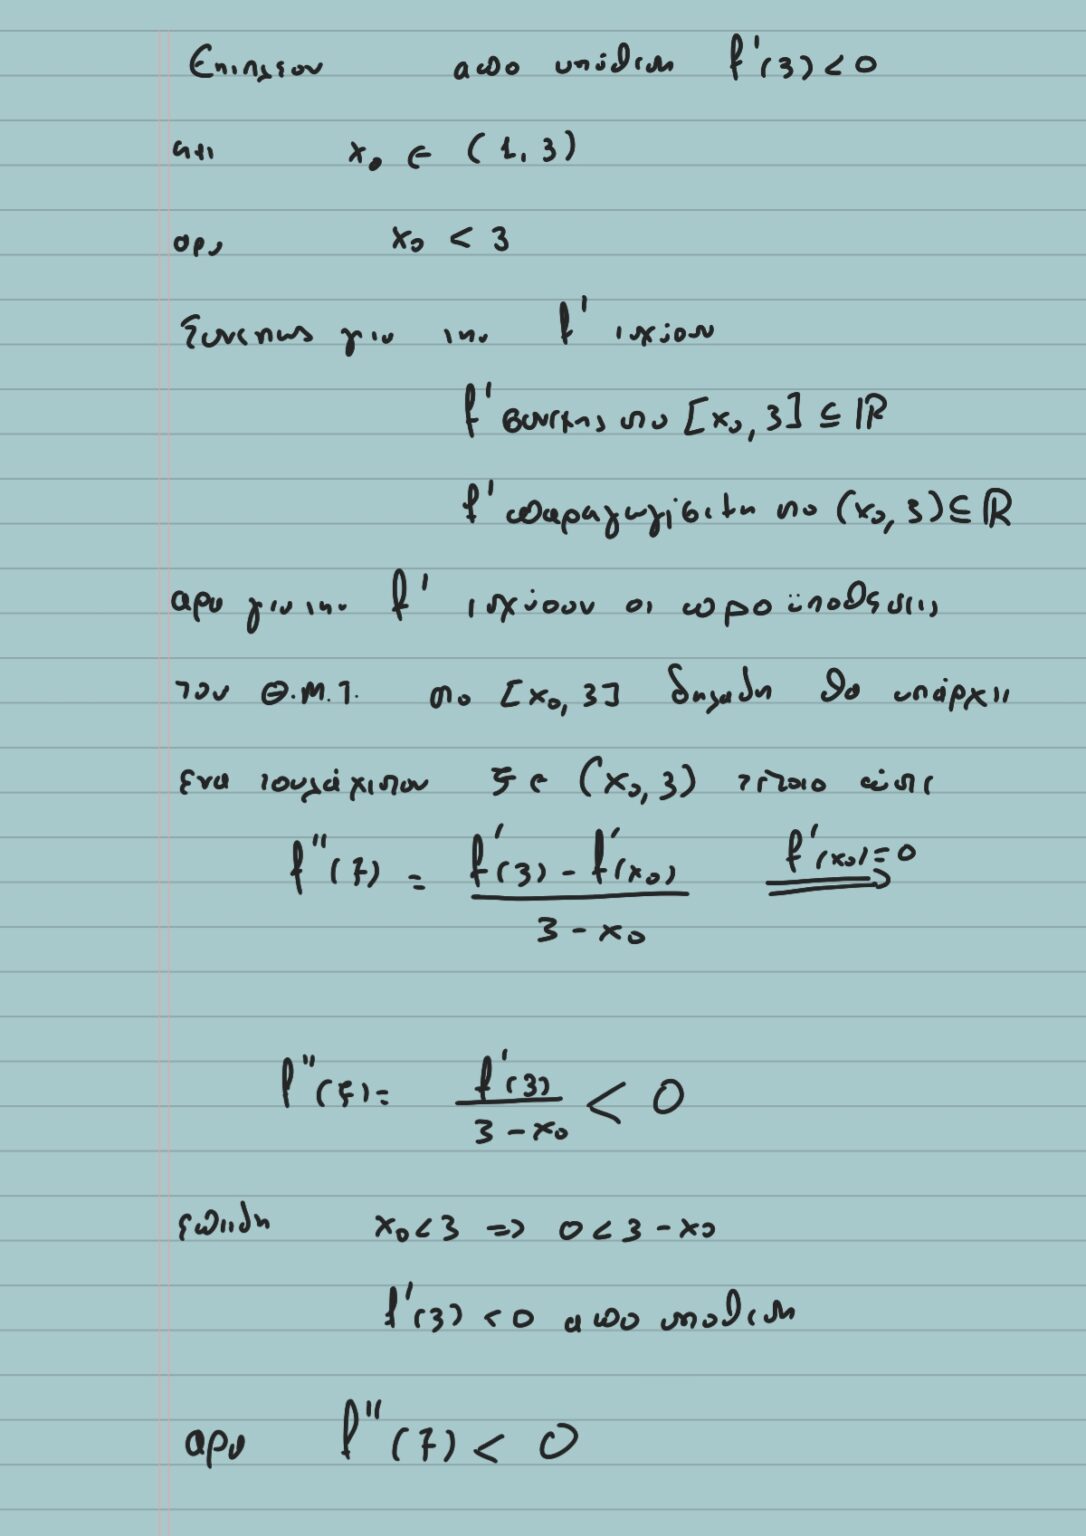 Επιπλεον απο υπόθεση f'(3) < 0
και x₀ ∈ (1, 3)
αρα x₀ < 3
Συνεπως για την f' ισχύουν
f' συνεχης στο [x₀, 3] ⊆ ℝ
f' παραγωγίσιμη στο (x₀, 3) ⊆ ℝ
αρα για την f' ισχύουν οι προϋποθέσεις
του Θ.Μ.Τ. στο [x₀, 3] δηλαδη θα υπάρχει
ενα τουλάχιστον ξ ∈ (x₀, 3) τέτοιο ώστε
f''(ξ) = (f'(3) - f'(x₀)) / (3 - x₀) f'(x₀) = 0 ⇒
f''(ξ) = f'(3) / (3 - x₀) < 0
επειδη x₀ < 3 ⇒ 0 < 3 - x₀
f'(3) < 0 απο υποθεση
αρα f''(ξ) < 0